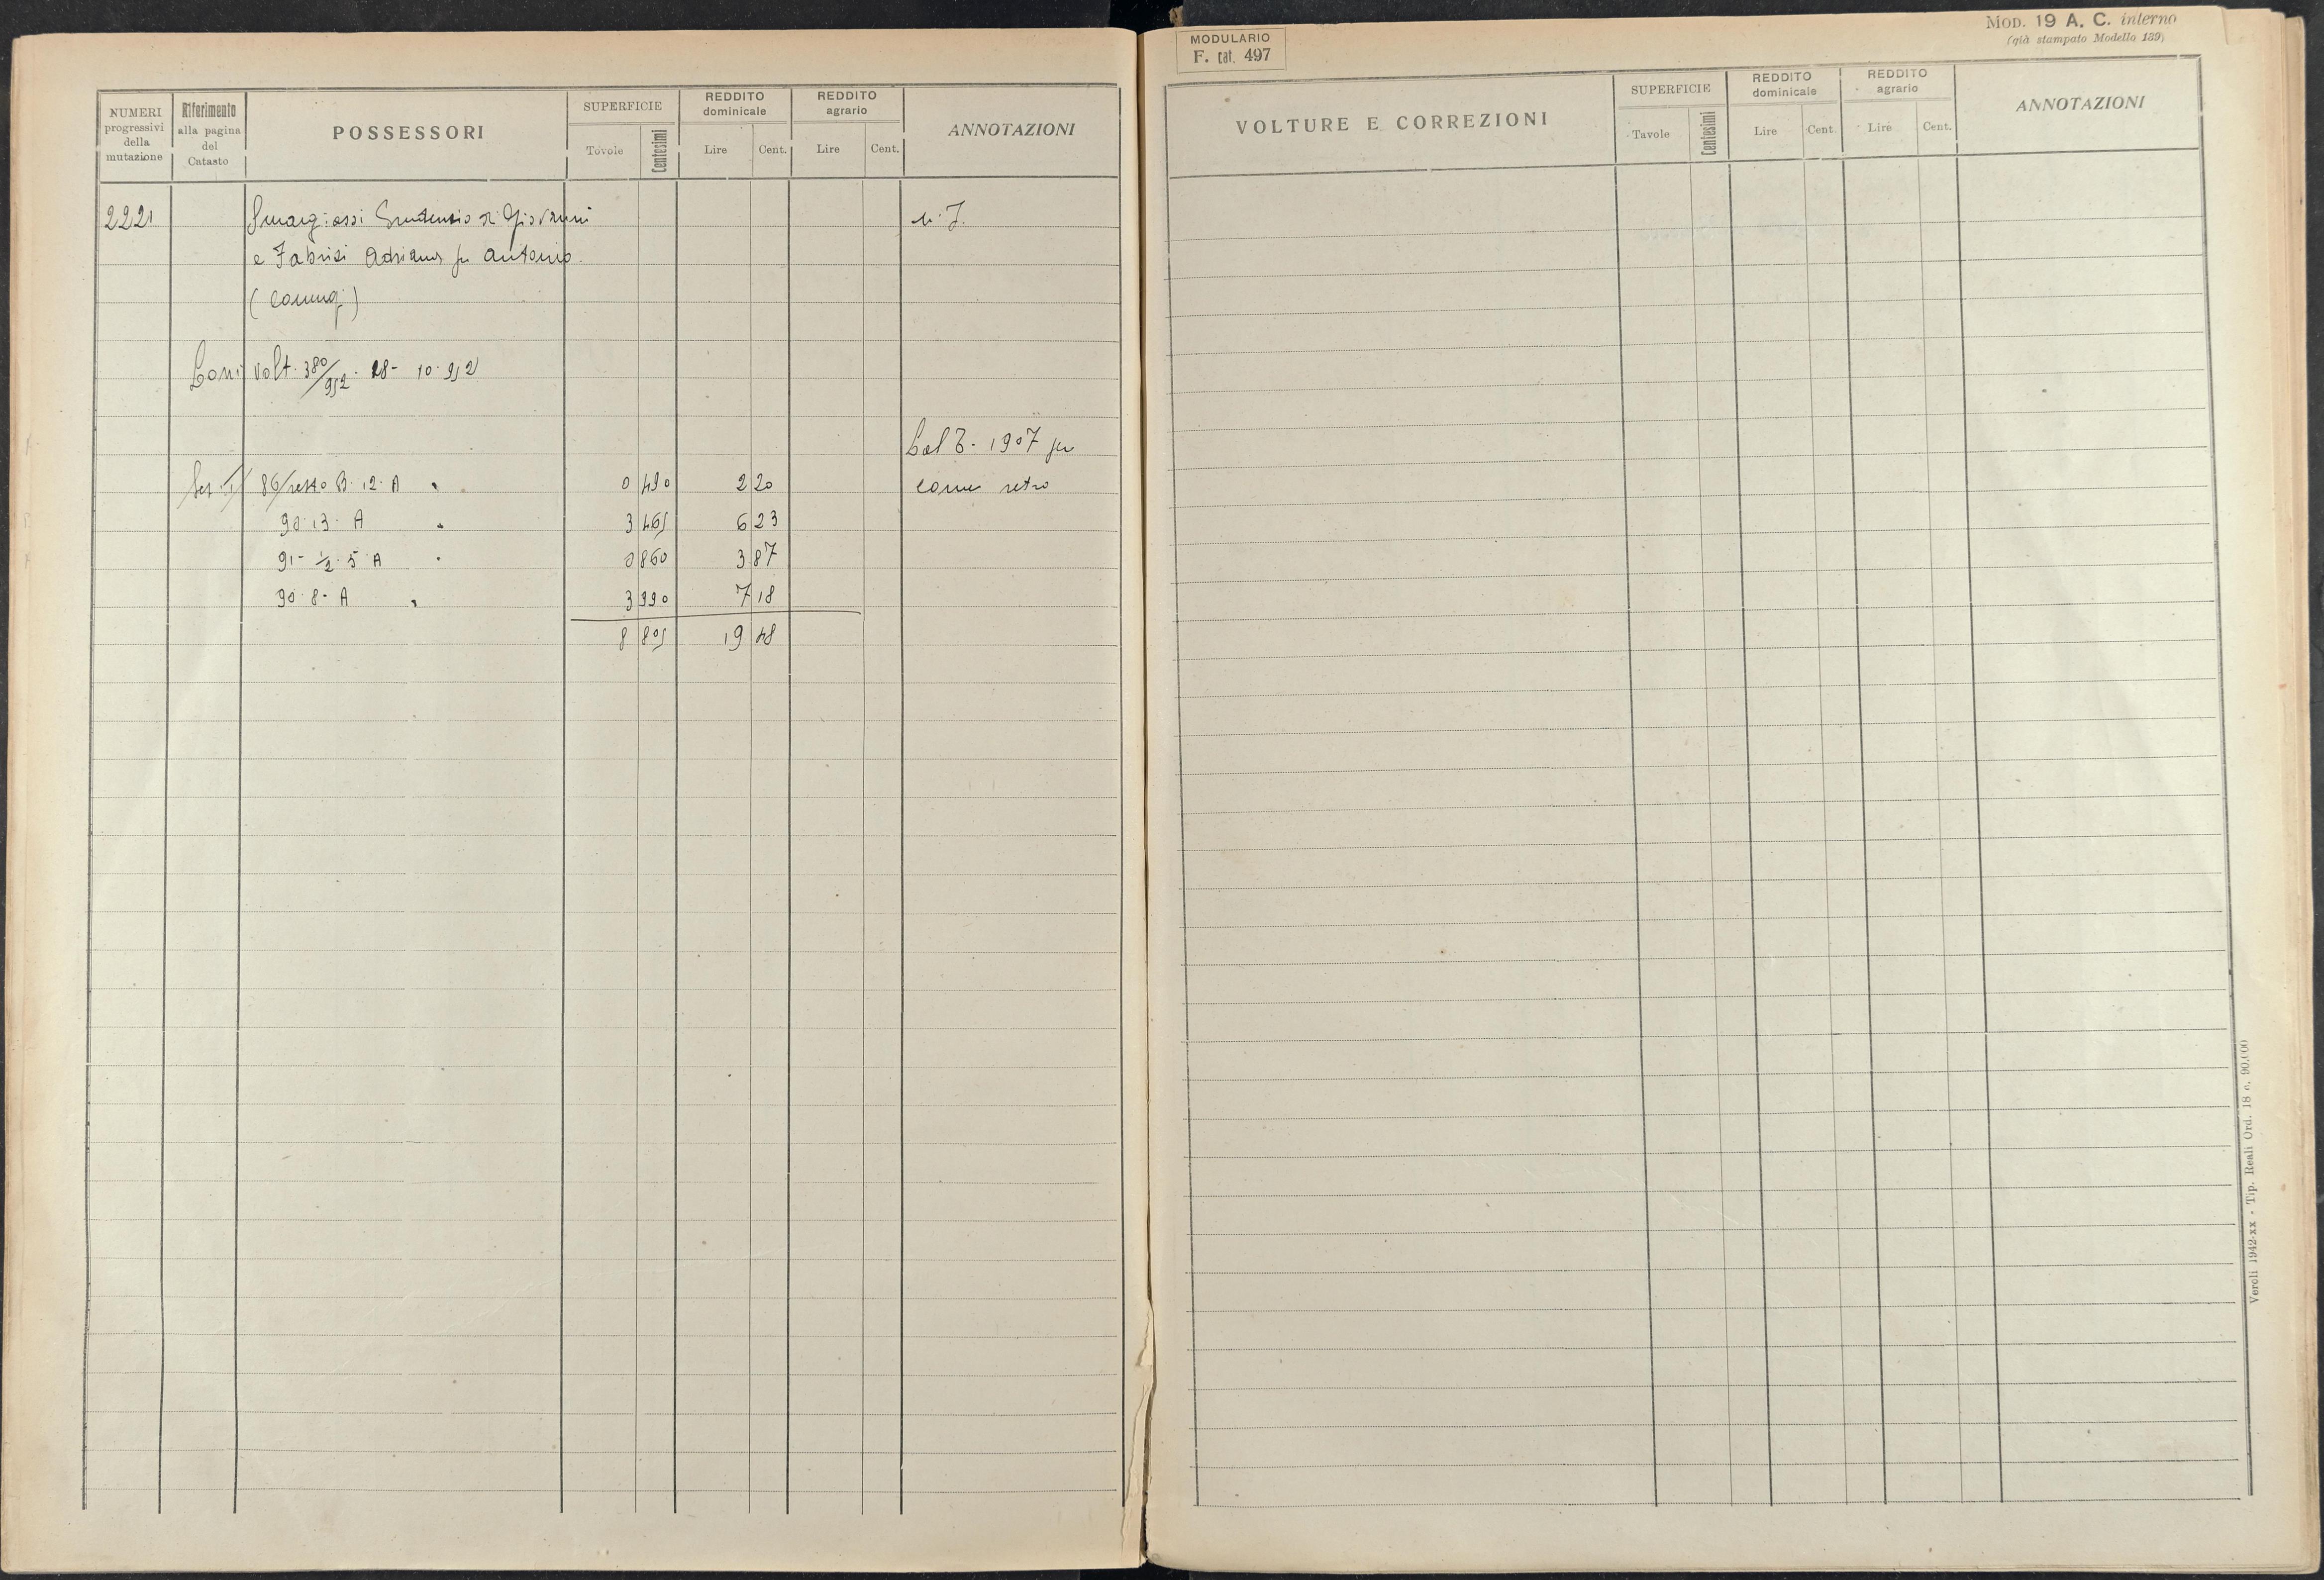 NUMERI progressivi della mutazione
Riferimento alla pagina del Catasto
POSSESSORI
SUPERFICIE
Tovole Centesimi
REDDITO dominicale
Lire Cent.
REDDITO agrario
Lire Cent.
ANNOTAZIONI
2221 Smargiassi Prudenzio di Giovanni
e Fabrizi Adriana fu Antonio
(coniugi)
volt. 380/952 - 28 - 10 - 952
Dal T. 1907 per
86/resto B. 12. A 0 490 2 20 come retro
90. 13. A 3 465 6 23
91 - 1/2. 5 A 0 860 3 87
90. 8 - A 3 990 7 18
8 805 19 48
MODULARIO
F. cat. 497
MOD. 19 A. C. interno
(già stampato Modello 139)
VOLTURE E CORREZIONI
SUPERFICIE
Tavole Centesimi
REDDITO dominicale
Lire Cent.
REDDITO agrario
Lire Cent.
ANNOTAZIONI
Veroli 1942-XX - Tip. Reali Ord. 18 c. 90.000